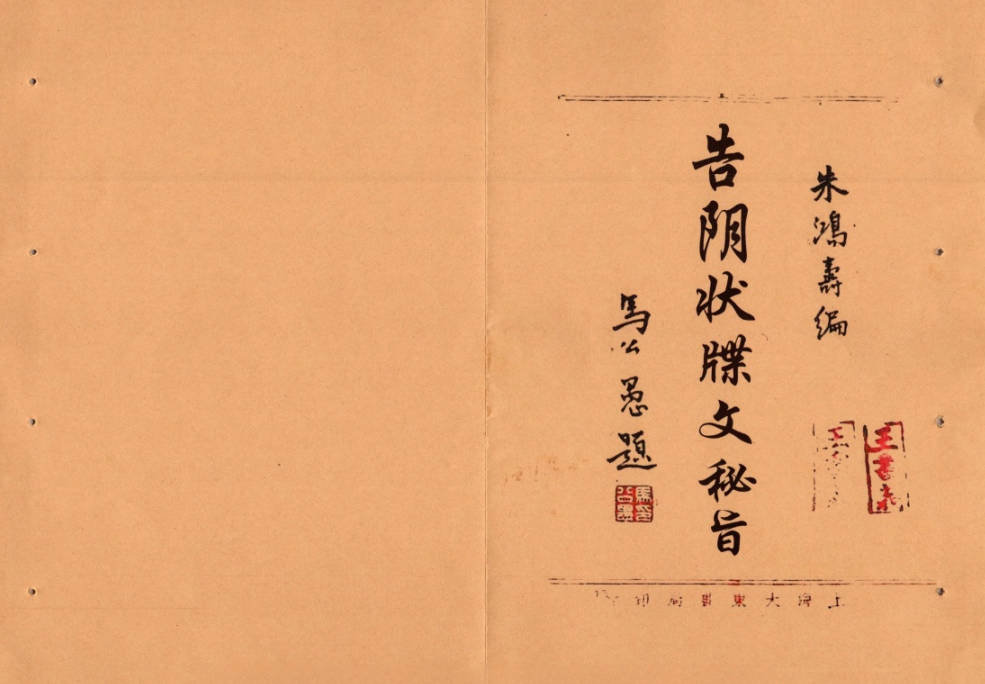 朱鴻壽編
告阴状牒文秘旨
馬公愚題
王書
上海大東書局印